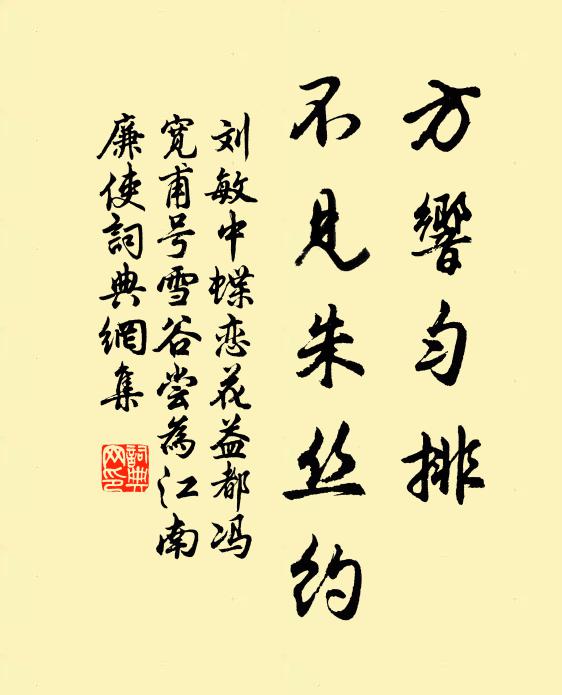 方響匀排
不见朱丝约
刘敏中蝶恋花益都冯
宽甫号雪谷尝為江南
廉使詞典網集
詞典網印